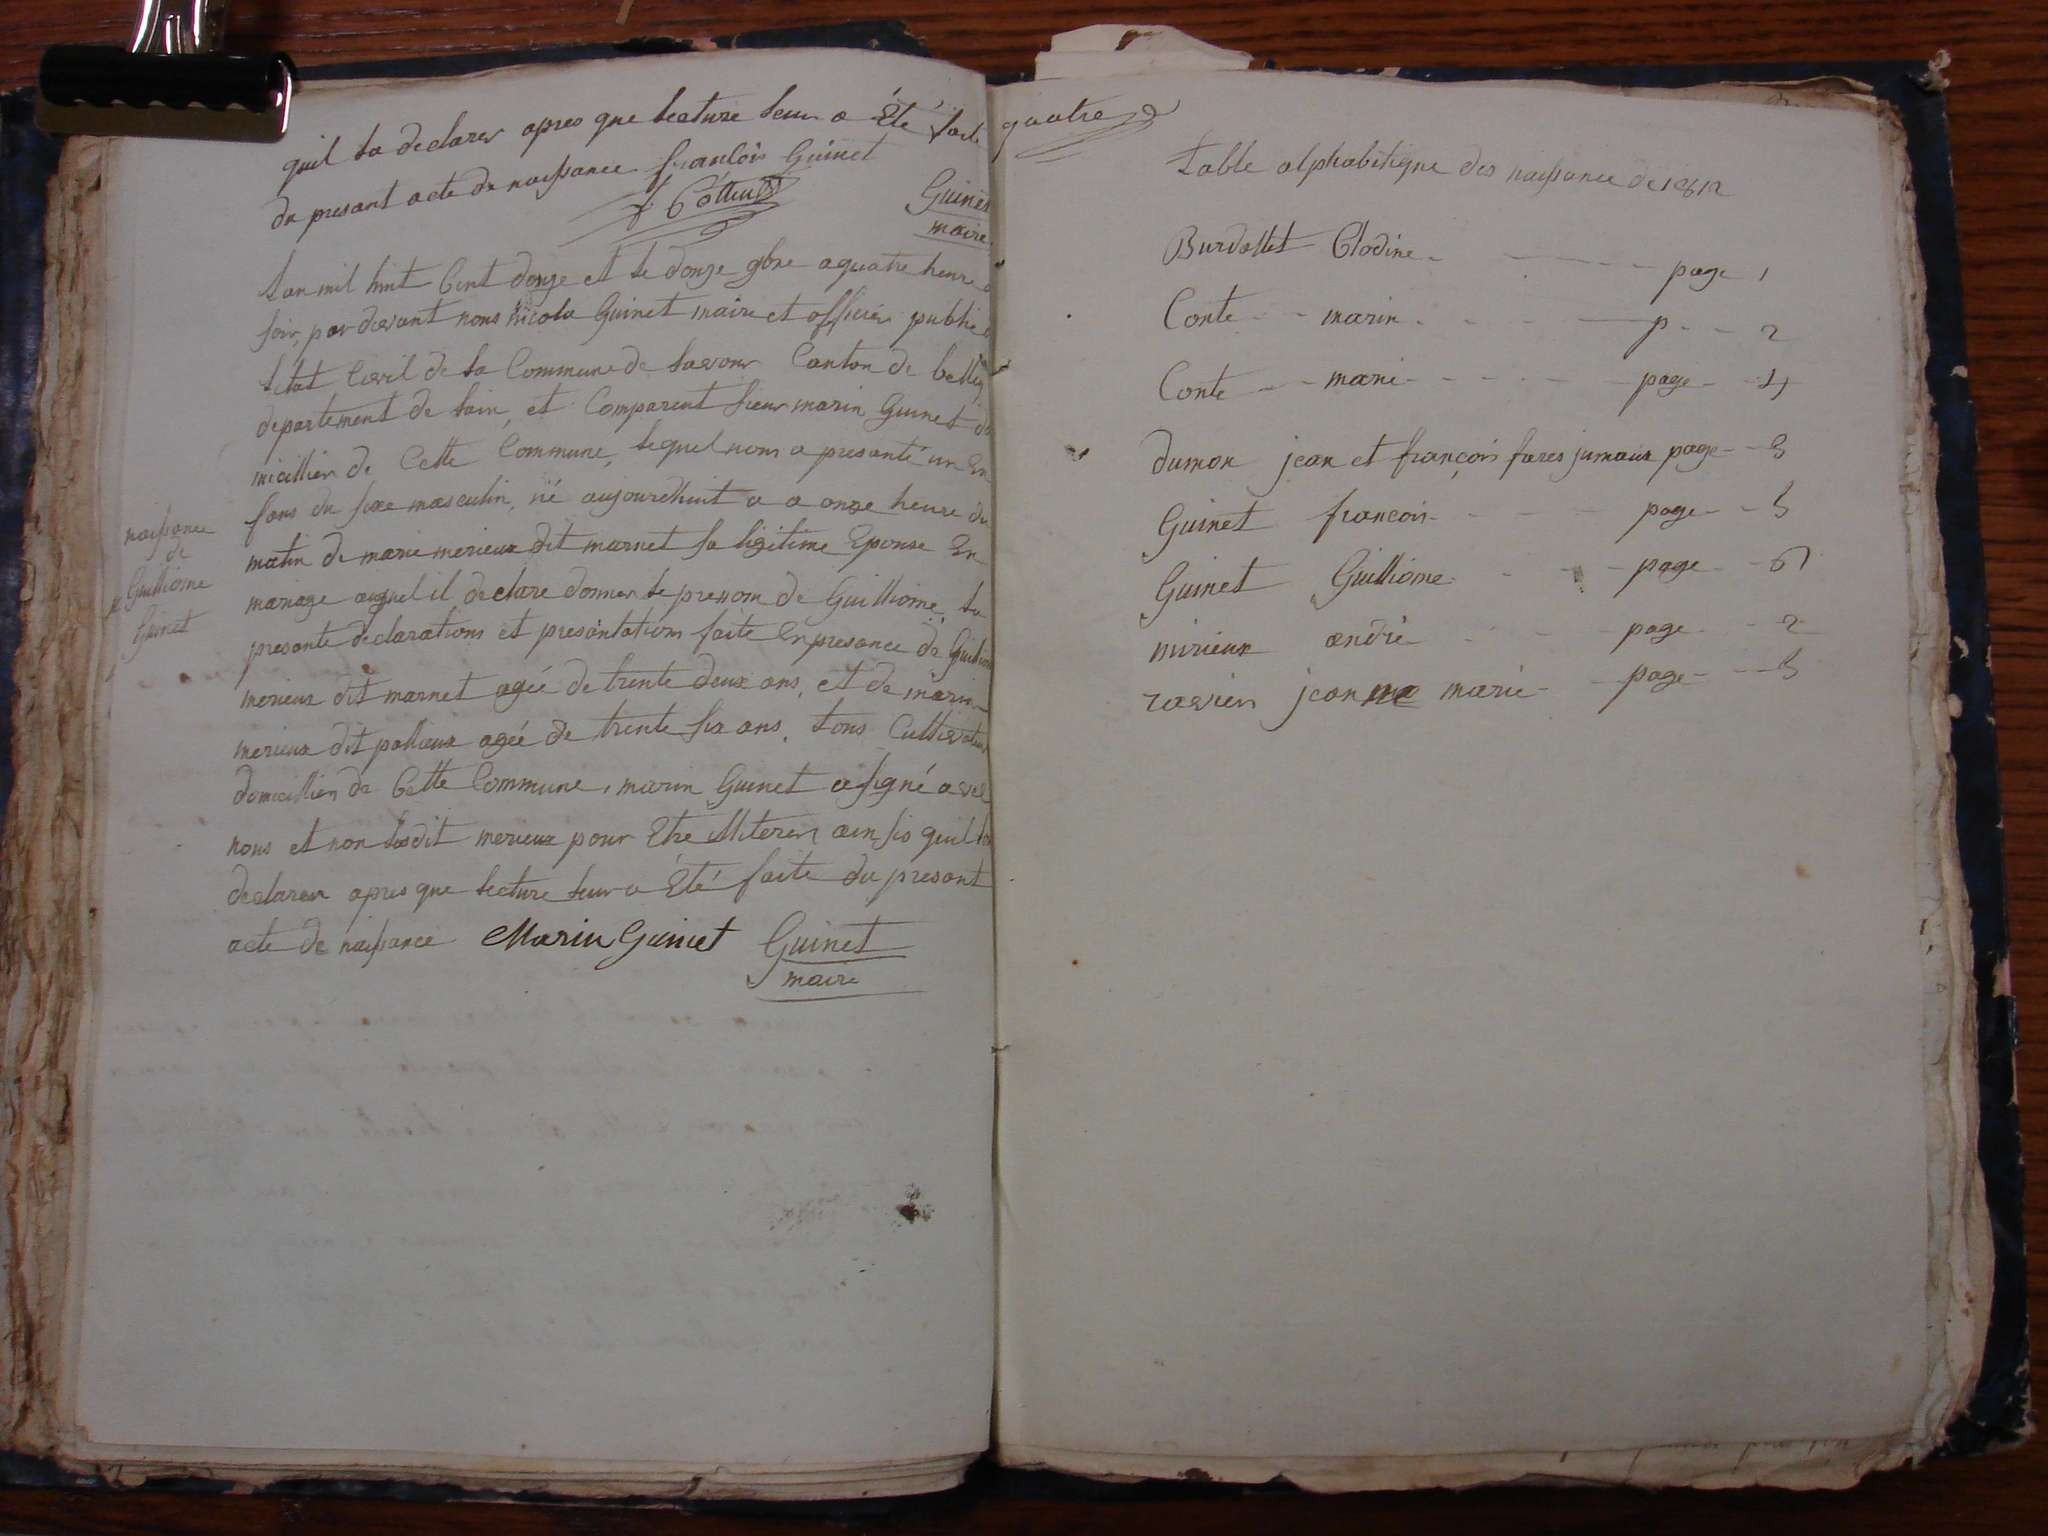 quil la declarer apres que lecture leur a Eté faite
du presant acte de naissance françois Guinet
Guinet
maire
Lan mil huit Cent douze et le douze 9bre a quatre heure
soir, par devant nous nicola Guinet maire et officier public
letat Civil de la Commune de lavour Canton de belley
departement de lain, et Comparent sieur marin Guinet do
micillier de Cette Commune, lequel nous a presanté un En
fans du sexe masculin, né aujourdhuit a a onze heure du
matin de marie merieux dit marnet sa ligitime Epouse En
mariage auquel il declare donner le prenom de Guilliome, la
presante declarations et presantations faite En presance de Guilliome
merieux dit marnet ageé de trente deux ans, et de marin
merieux dit pallieux ageé de trente six ans, tous Cultivateur
domicillier de Cette Commune, marin Guinet a signé avec
nous et non lesdit merieux pour Etre illiterer ainsis quil lon
declarer apres que lecture leur a Eté faite du presant
acte de naissance Marin Guinet Guinet
maire
naissance
de
Guilliome
Guinet
quatre
table alphabetique des naissance de 1812
Burdallet Clodine - - - - page 1
Conte - - marin - - - - p - - 2
Conte - - marie - - - - page - - 4
dumon jean et françois fares jumaux page - - 3
Guinet francois - - - - page - - 5
Guinet Guilliome - - - page - - 6
mirieux andré - - - page - - 2
ravier jean marie - - page - - 5